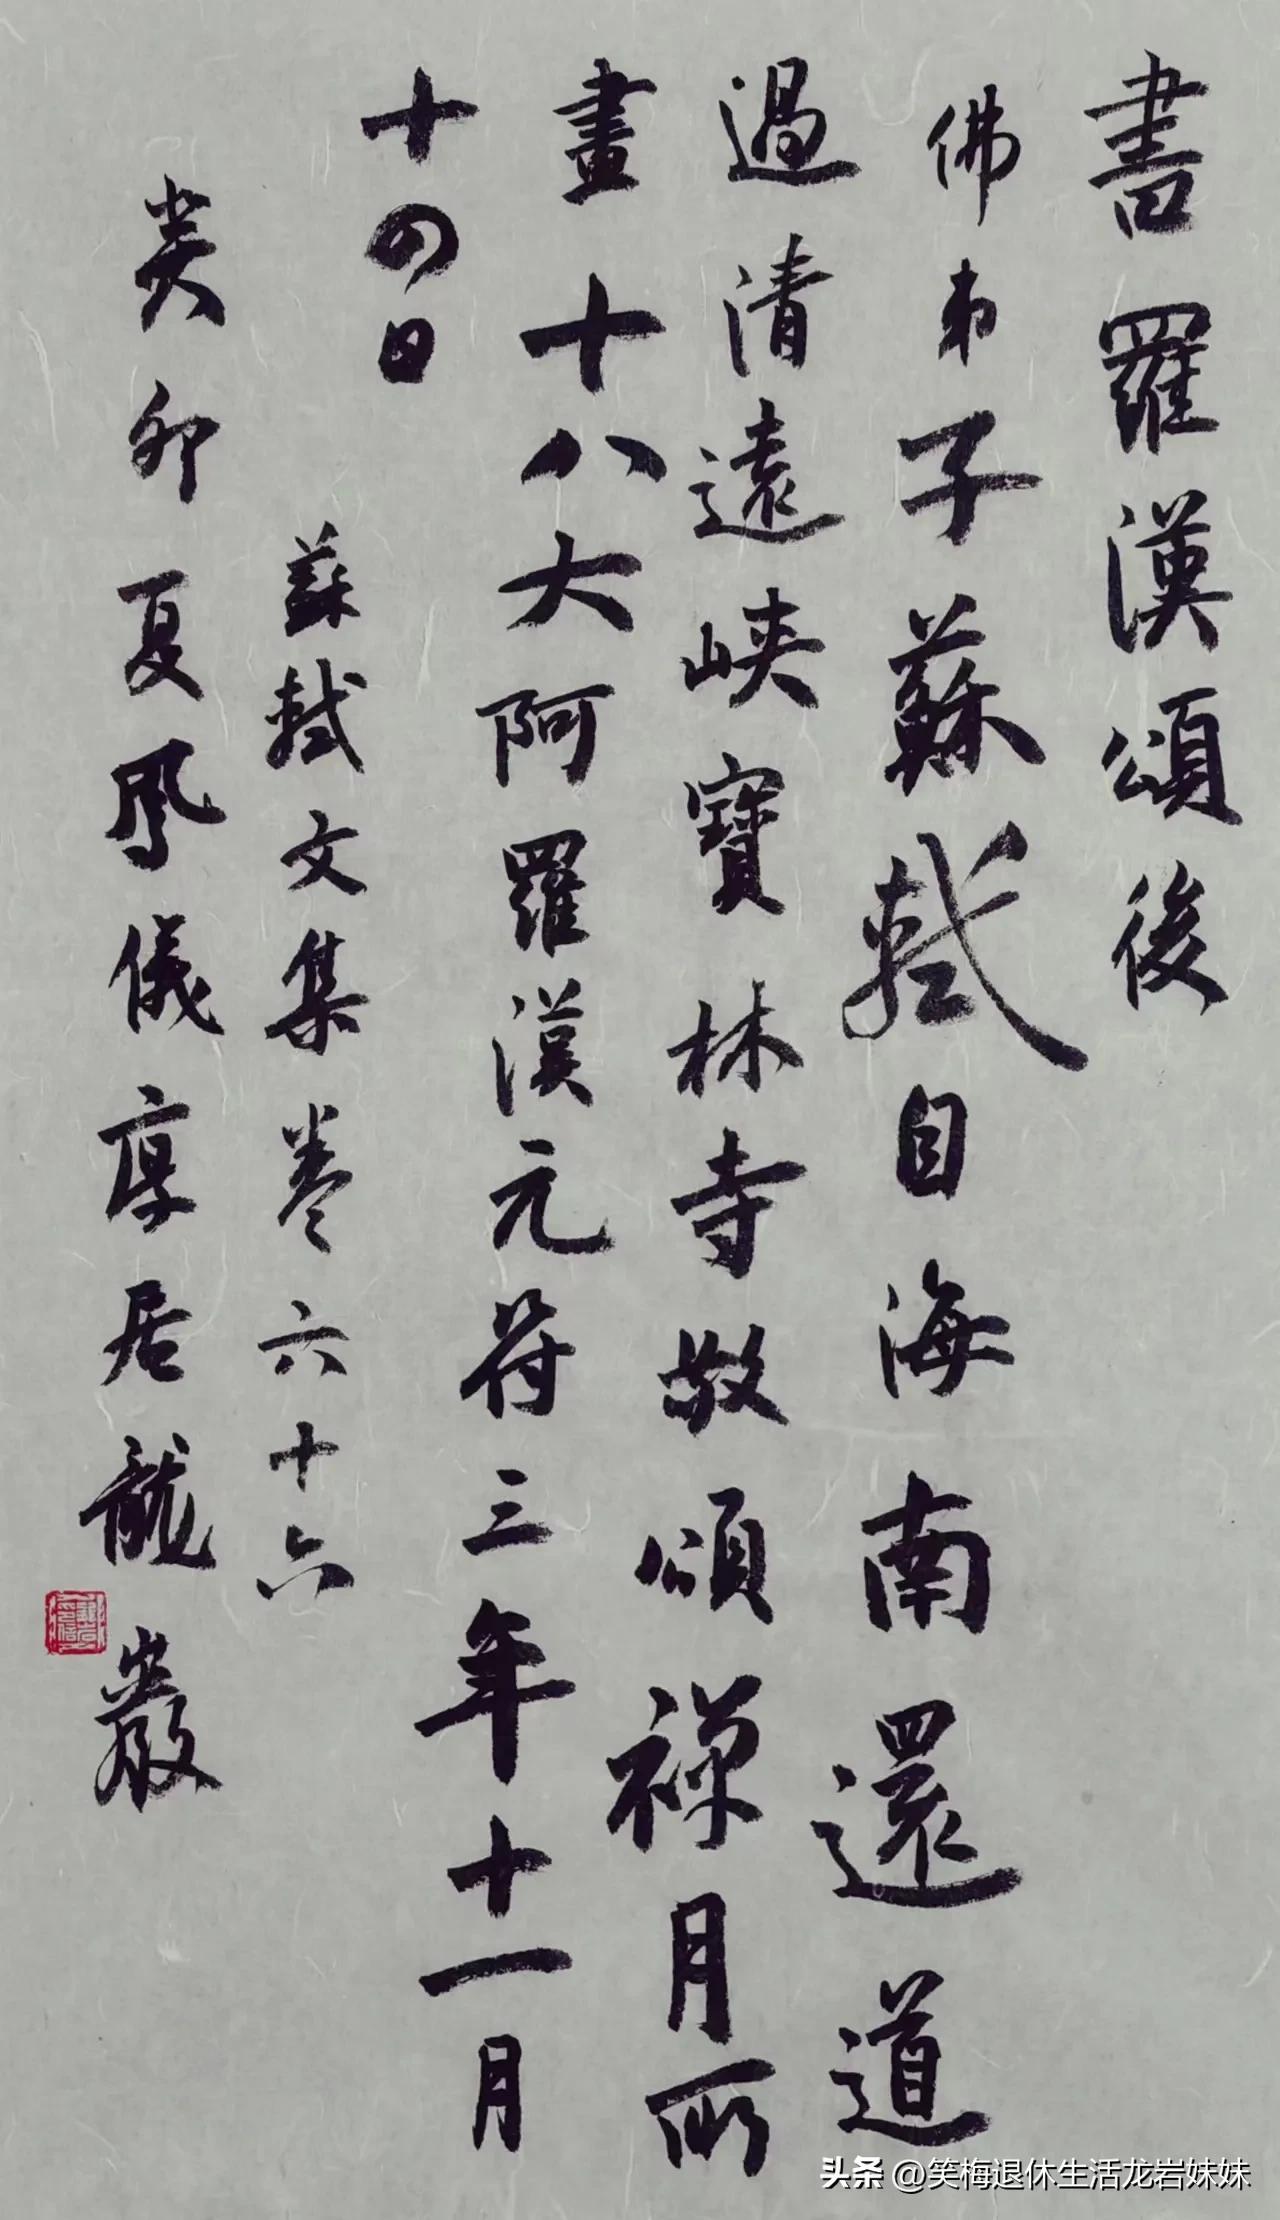 書羅漢頌後
佛弟子蘇軾自海南還道
過清遠峽寶林寺敬頌禪月所
畫十八大阿羅漢元符三年十一月
十四日
蘇軾文集卷六十六
癸卯夏鳳儀厚居龍巖
头条 @笑梅退休生活龙岩妹妹